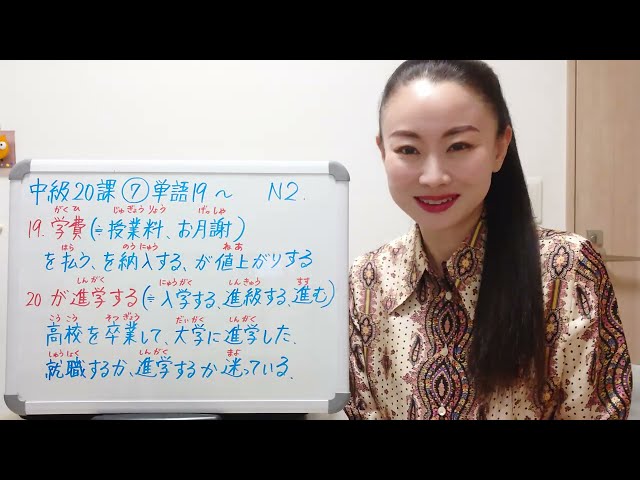 中級20課⑦単語19～ N2.
がくひ じゅぎょうりょう げっしゃ
19.学費(≒授業料、お月謝)
はら のうにゅう ねあ
を払う、を納入する、が値上がりする
しんがく にゅうがく しんきゅう すす
20 が進学する(≒入学する、進級する、進む)
こうこう そつぎょう だいがく しんがく
高校を卒業して、大学に進学した.
しゅうしょく しんがく まよ
就職するか、進学するか迷っている.